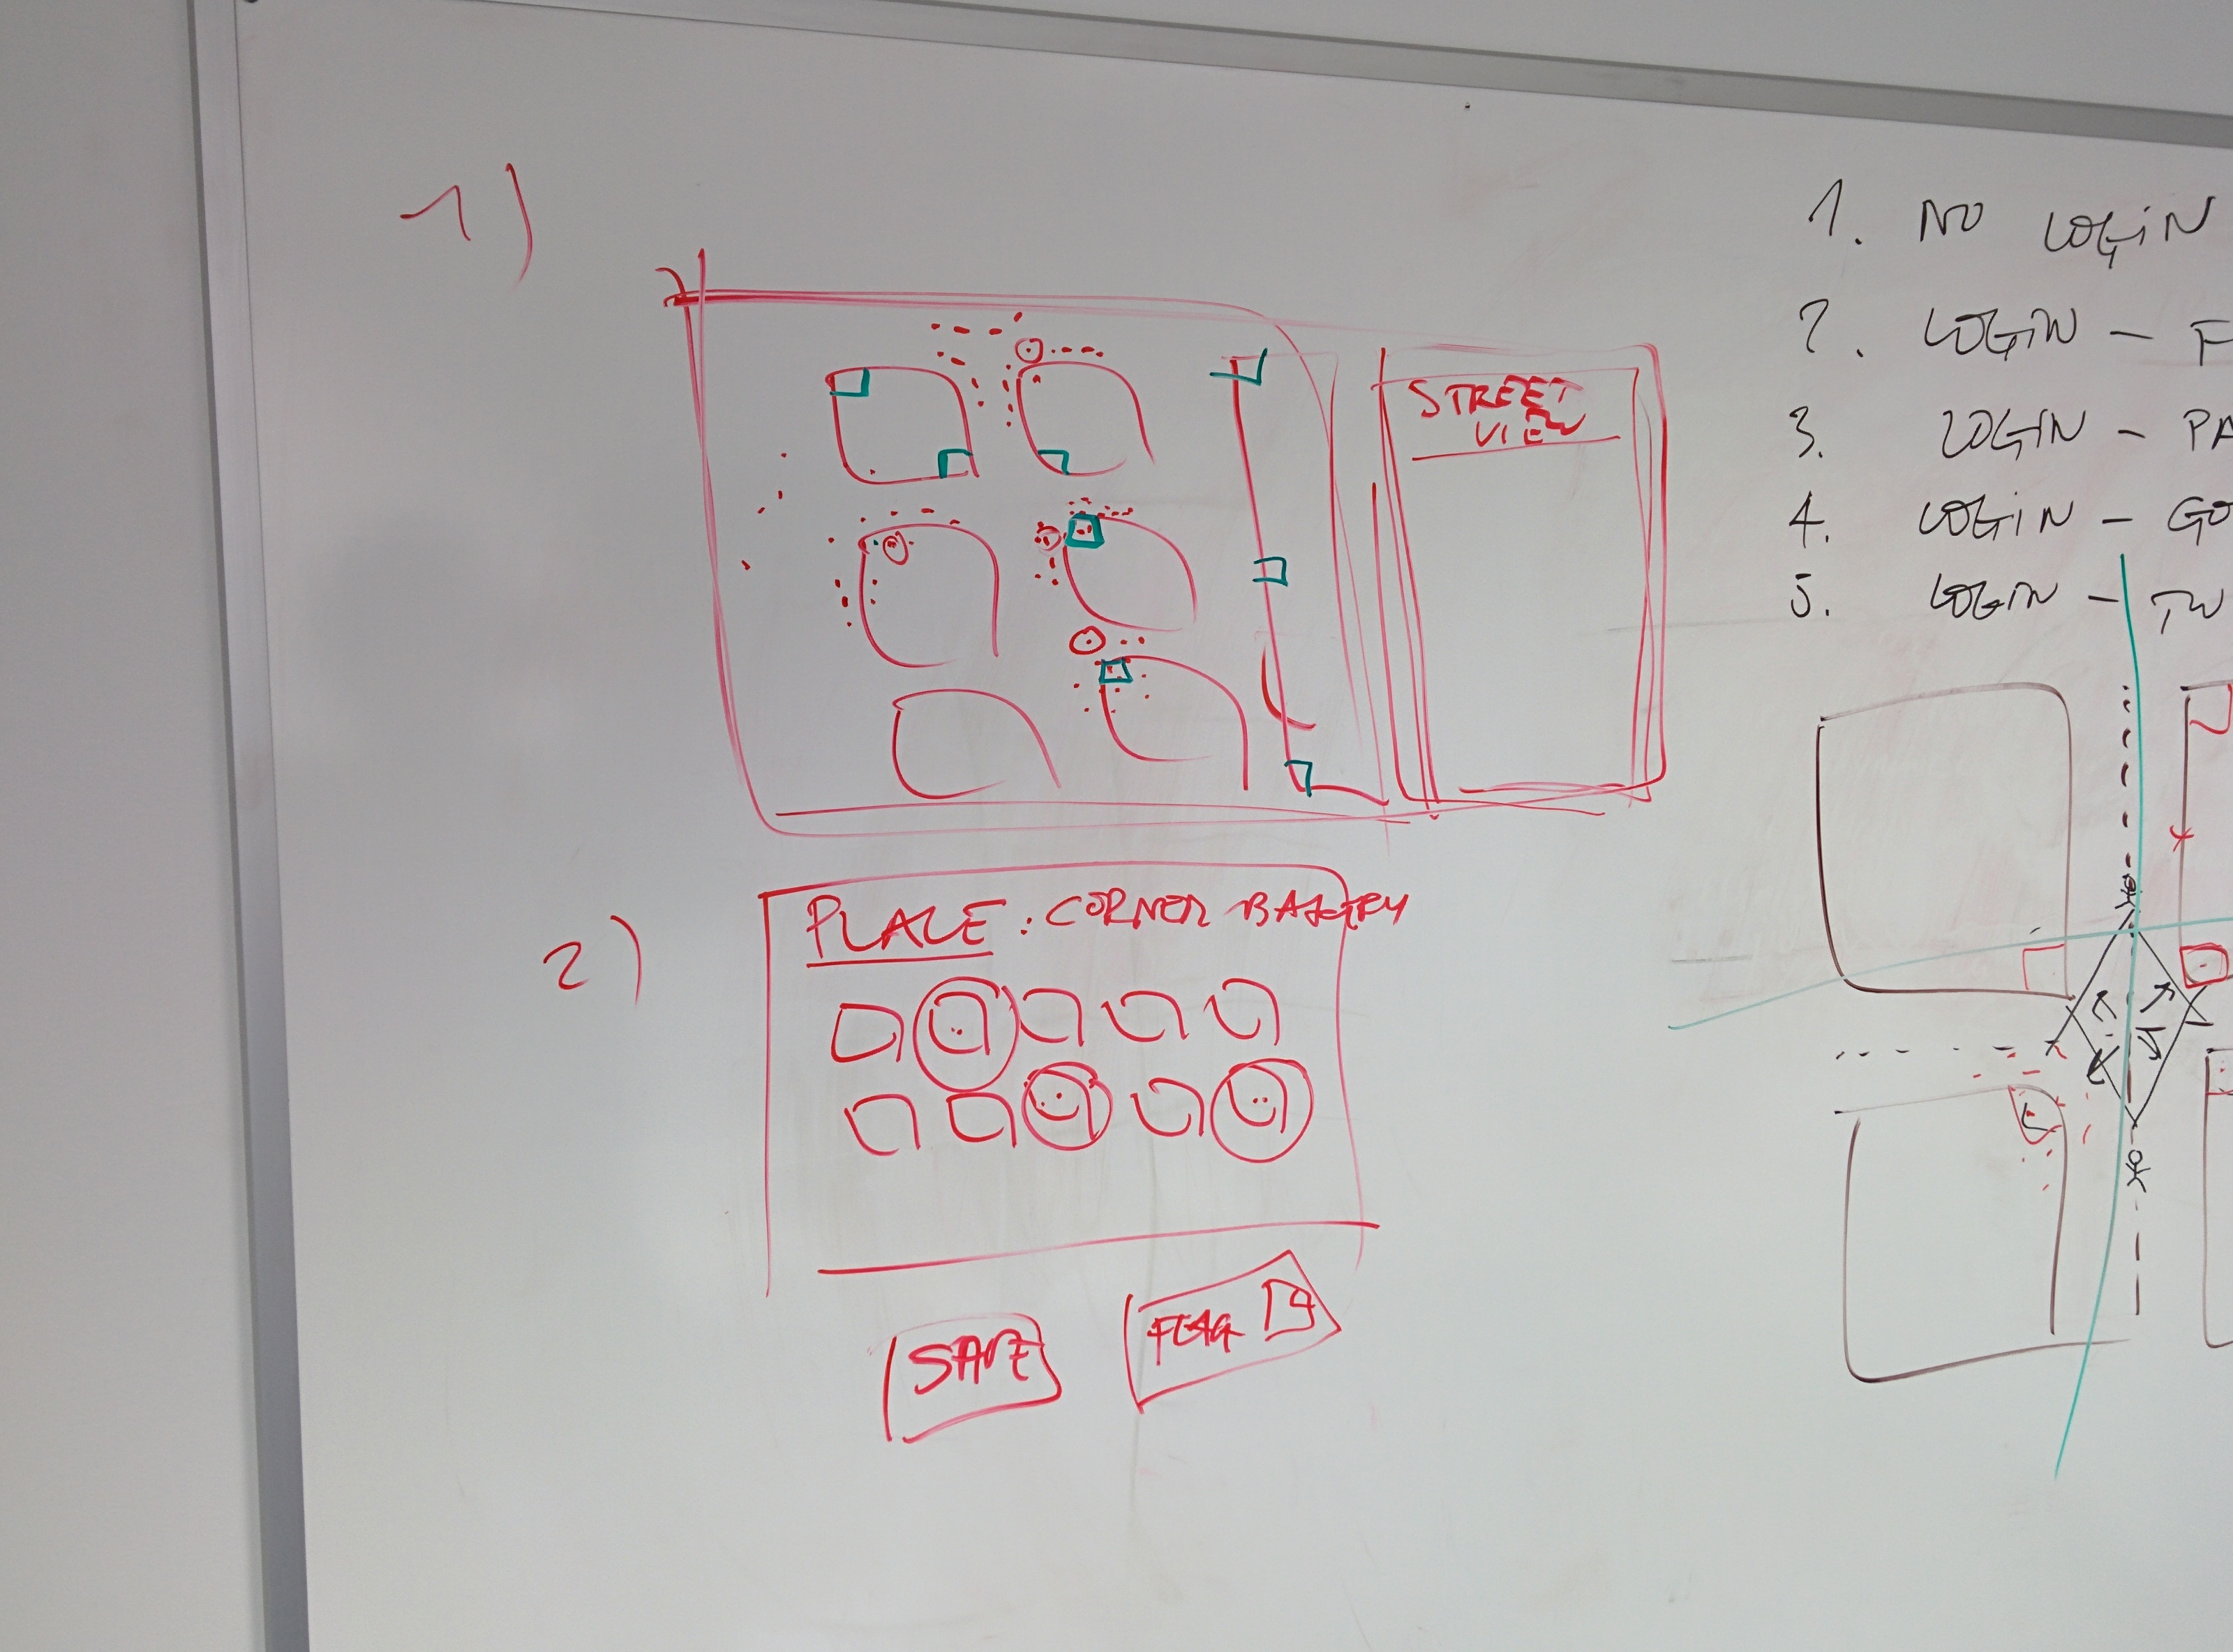 1)
STREET
VIEW
2)
PLACE: CORNER BAKERY
SAVE
FLAG
1. NO LOGIN
2. LOGIN - F
3. LOGIN - PA
4. LOGIN - GO
5. LOGIN - TW